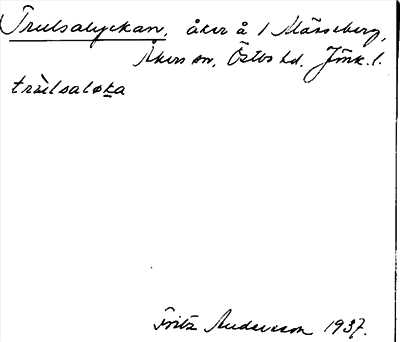 Trulsalyckan, åker å 1 Mässeberg,
Åkers sn, Östbo hd. Jönk. l.
trùlsaløka
Fritz Andersson 1937.